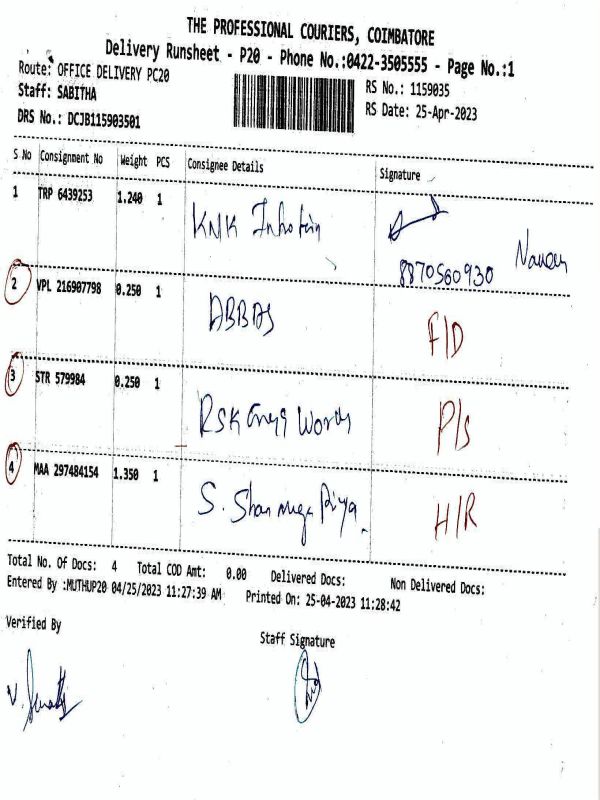 THE PROFESSIONAL COURIERS, COIMBATORE
Delivery Runsheet - P20 - Phone No.:0422-3505555 - Page No.:1
Route: OFFICE DELIVERY PC20
RS No.: 1159035
Staff: SABITHA
RS Date: 25-Apr-2023
DRS No.: DCJB115903501
S No Consignment No Weight PCS Consignee Details Signature
1 TRP 6439253 1.240 1 KNK
8870560930 Naveen
2 VPL 216907798 0.250 1 ABBAS F/D
3 STR 579984 0.250 1 RSK Works P/S
4 MAA 297484154 1.350 1 S. Shanmuga Priya. H/R
Total No. Of Docs: 4 Total COD Amt: 0.00 Delivered Docs: Non Delivered Docs:
Entered By :MUTHUP20 04/25/2023 11:27:39 AM Printed On: 25-04-2023 11:28:42
Verified By Staff Signature